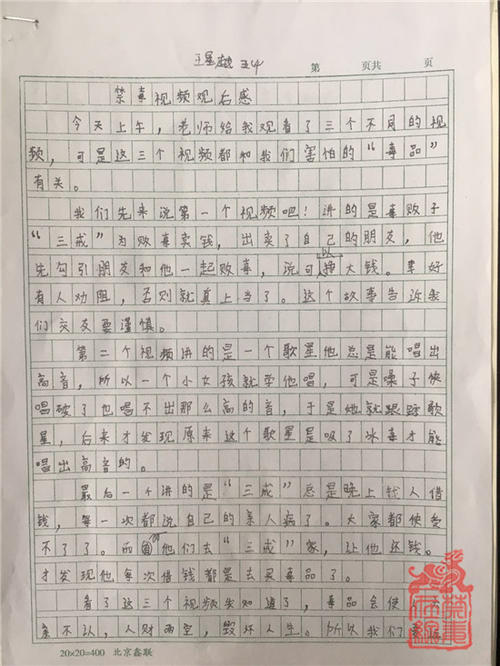 王星越 五4
第 页共 页
禁毒视频观后感
今天上午,老师给我观看了三个不同的视
频,可是这三个视频都和我们害怕的“毒品”
有关。
我们先来说第一个视频吧!讲的是毒败子
“三戒”为败毒卖钱,出卖了自己的朋友,他
先勾引朋友和他一起败毒,说可以挣大钱。幸好
有人劝阻,否则就真上当了。这个故事告诉我
们交友要谨慎。
第二个视频讲的是一个歌星他总是能唱出
高音,所以一个小女孩就学他唱,可是嗓子快
唱破了也唱不出那么高的音,于是她就跟踪歌
星,后来才发现原来这个歌星是吸了冰毒才能
唱出高音的。
最后一个讲的是“三戒”总是晚上找人借
钱,每一次都说自己的亲人病了。大家都快受
不了了。而他们去“三戒”家,让他还钱。
才发现他每次借钱都是去买毒品了。
看了这三个视频我知道了,毒品会使人
亲不认,人财两空,毁坏人生。所以我们要
20×20=400 北京鑫联